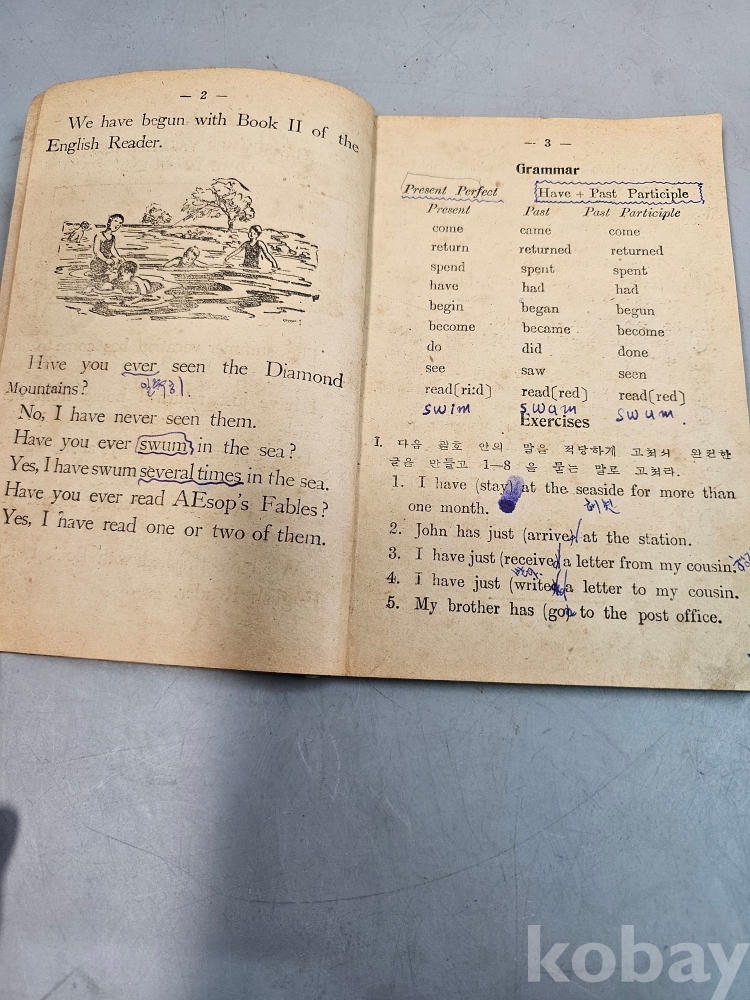 — 2 —
We have begun with Book II of the
English Reader.
Have you ever seen the Diamond
Mountains?
No, I have never seen them.
Have you ever swum in the sea?
Yes, I have swum several times in the sea.
Have you ever read AEsop's Fables?
Yes, I have read one or two of them.
— 3 —
Grammar
Present Perfect Have + Past Participle
Present Past Past Participle
come came come
return returned returned
spend spent spent
have had had
begin began begun
become became become
do did done
see saw seen
read(ri:d) read(red) read(red)
swim swam swum.
Exercises
I. 다음 괄호 안의 말을 적당하게 고쳐서 완전한
글을 만들고 1—8 을 묻는 말로 고쳐라.
1. I have (stay) at the seaside for more than
one month.
2. John has just (arrive) at the station.
3. I have just (receive) a letter from my cousin.
4. I have just (write) a letter to my cousin.
5. My brother has (go) to the post office.
kobay